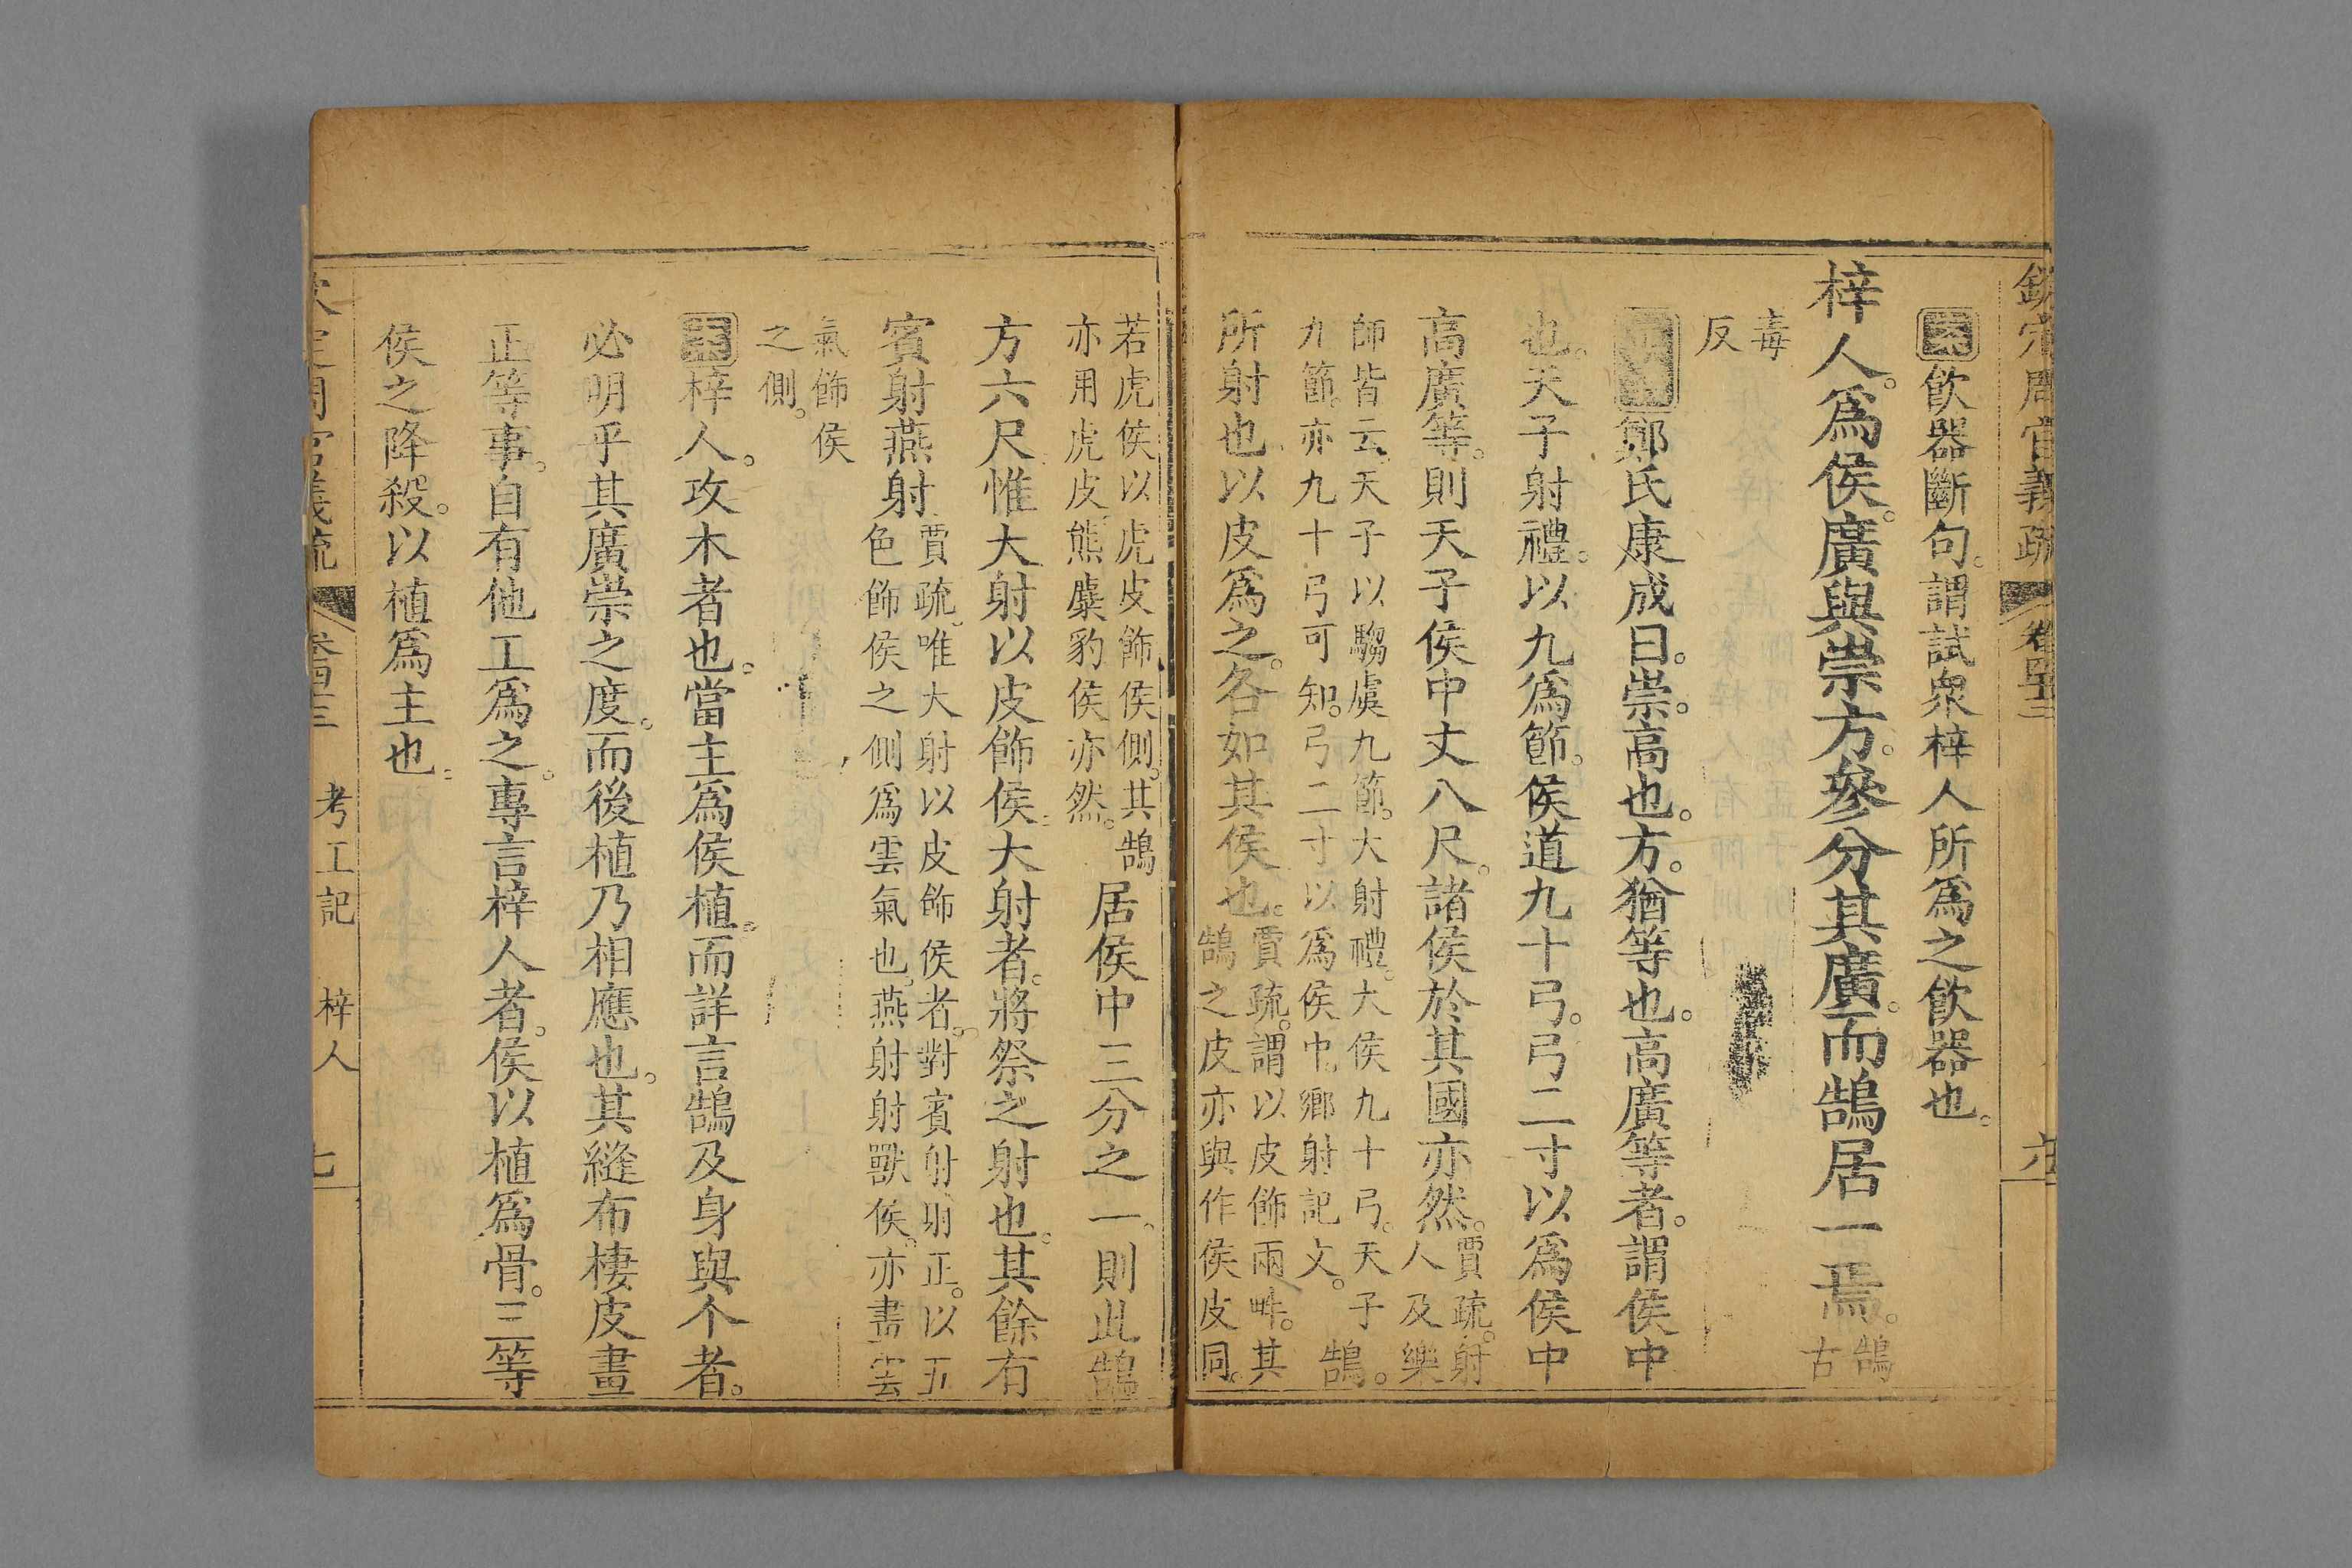 欽定周官義疏 卷四十三 六
案飲器斷句。謂試衆梓人所爲之飲器也。
梓人。爲侯。廣與崇方。參分其廣。而鵠居一焉。鵠古
毒反
鄭氏康成曰。崇。高也。方。猶等也。高廣等者。謂侯中
也。天子射禮。以九爲節。侯道九十弓。弓二寸以爲侯中
高廣等。則天子侯中丈八尺。諸侯於其國亦然。賈疏。射人及樂
師皆云。天子以騶虞九節。大射禮。大侯九十弓。天子九節。亦九十弓可知。弓二寸以爲侯中。鄉射記文。鵠。
所射也。以皮爲之。各如其侯也。賈疏。謂以皮飾兩畔。其鵠之皮亦與作侯皮同。
若虎侯以虎皮飾侯側。其鵠亦用虎皮。熊麋豹侯亦然。居侯中三分之一。則此鵠
方六尺。惟大射以皮飾侯。大射者。將祭之射也。其餘有
賓射燕射賈疏。唯大射以皮飾侯者。對賓射射正。以五色飾侯之側爲雲氣也。燕射射獸侯。亦畫雲
氣飾侯之側。
案梓人。攻木者也。當主爲侯植。而詳言鵠及身與个者。
必明乎其廣崇之度。而後植乃相應也。其縫布棲皮畫
正等事。自有他工爲之。專言梓人者。侯以植爲骨。三等
侯之降殺。以植爲主也。
欽定周官義疏 卷四十三 考工記 梓人 七